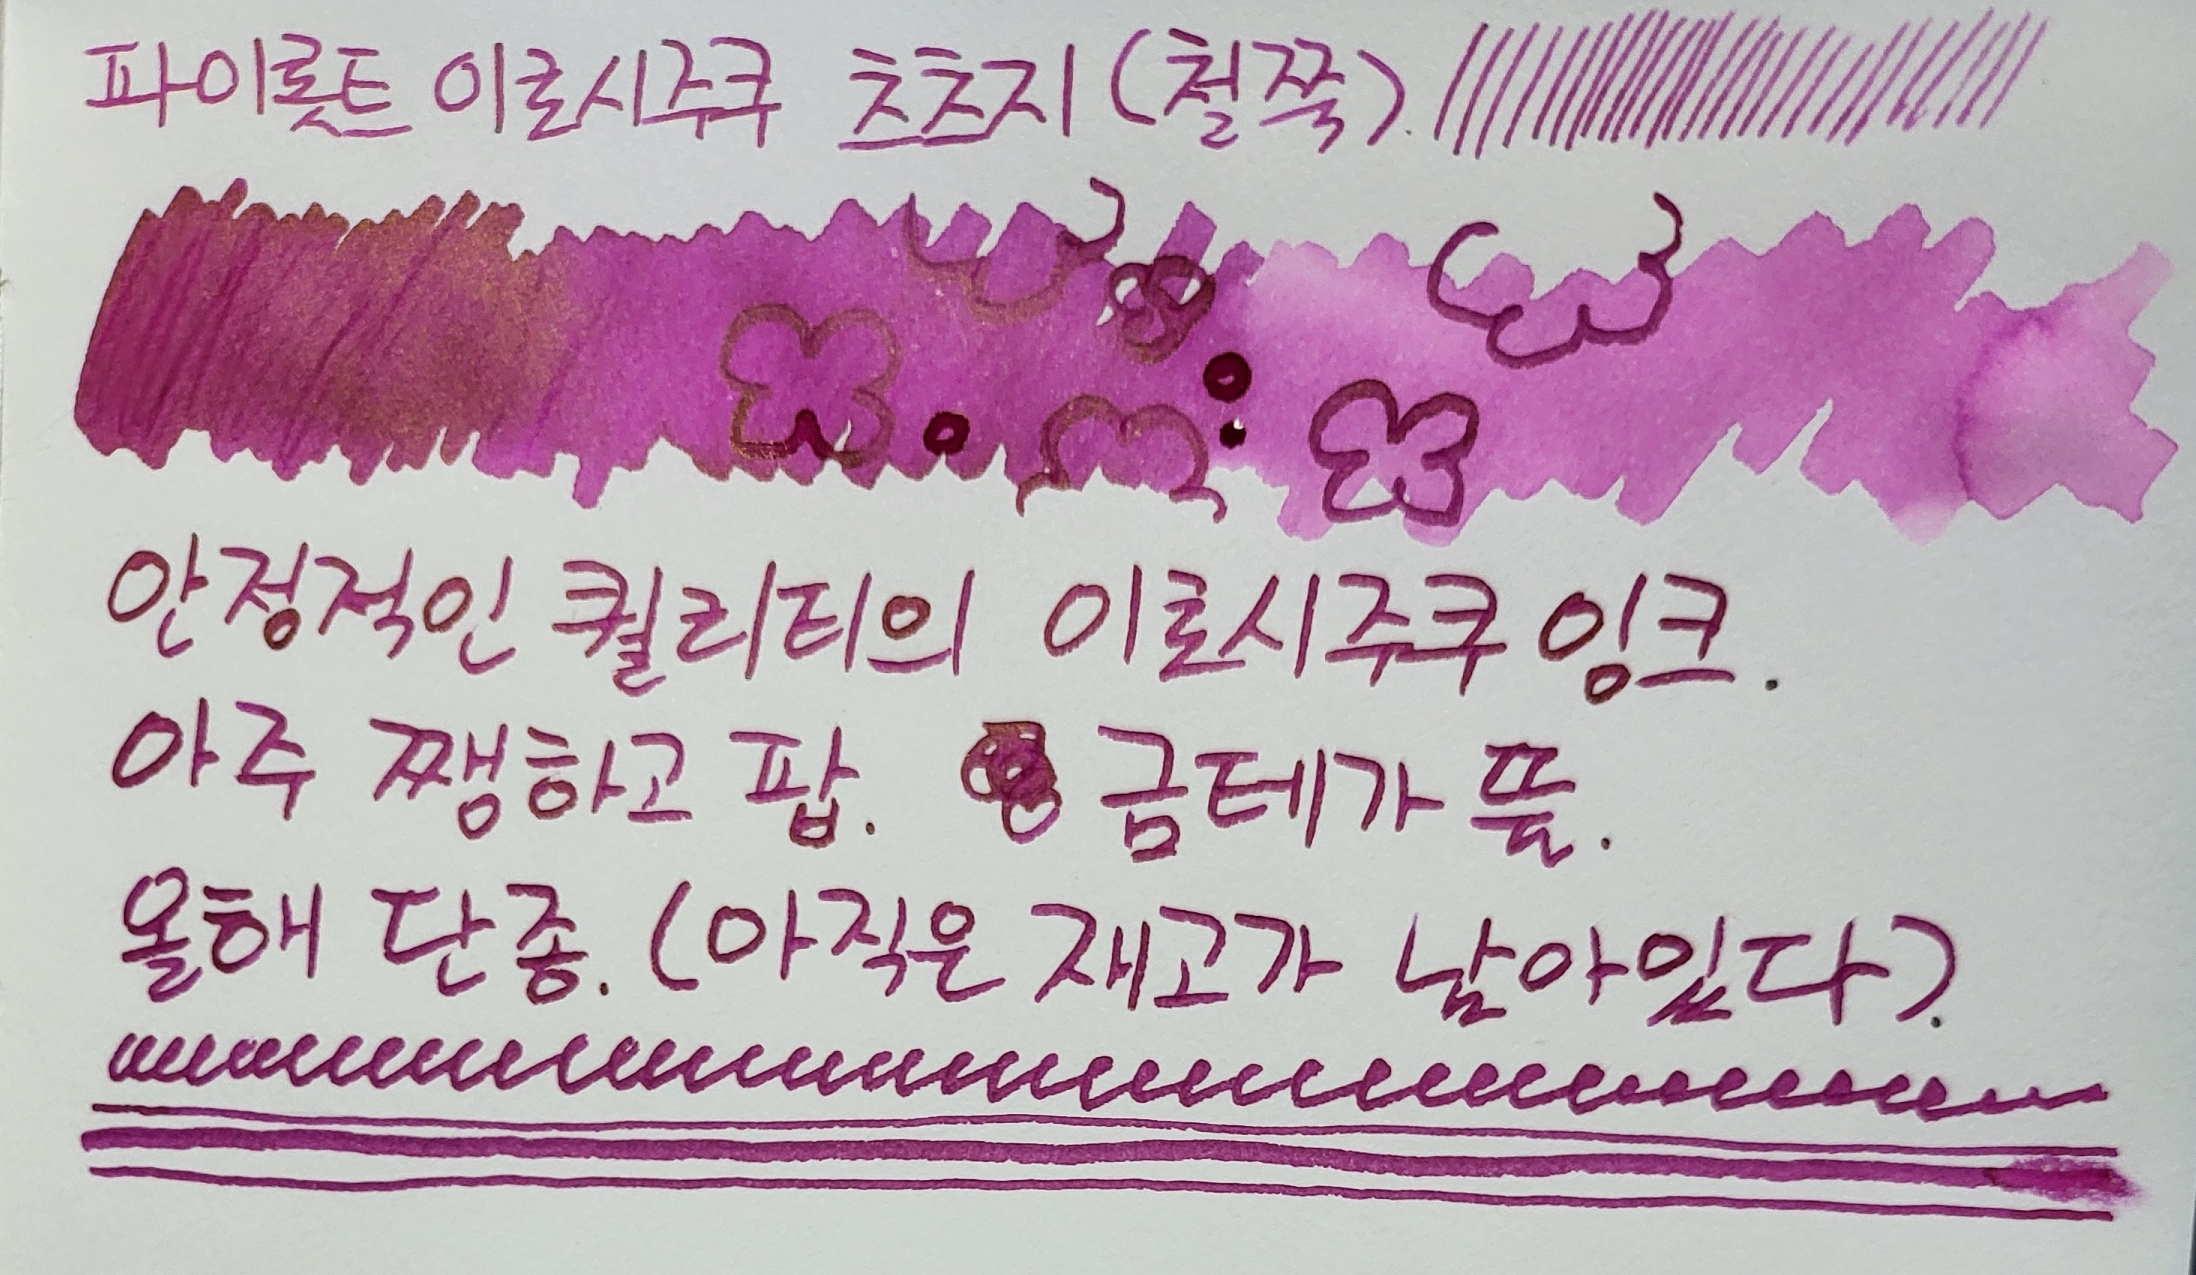 파이롯트 이로시주쿠 츠츠지 (철쭉).
안정적인 퀄리티의 이로시주쿠 잉크.
아주 쨍하고 팝. 금테가 뜸.
올해 단종. (아직은 재고가 남아있다).